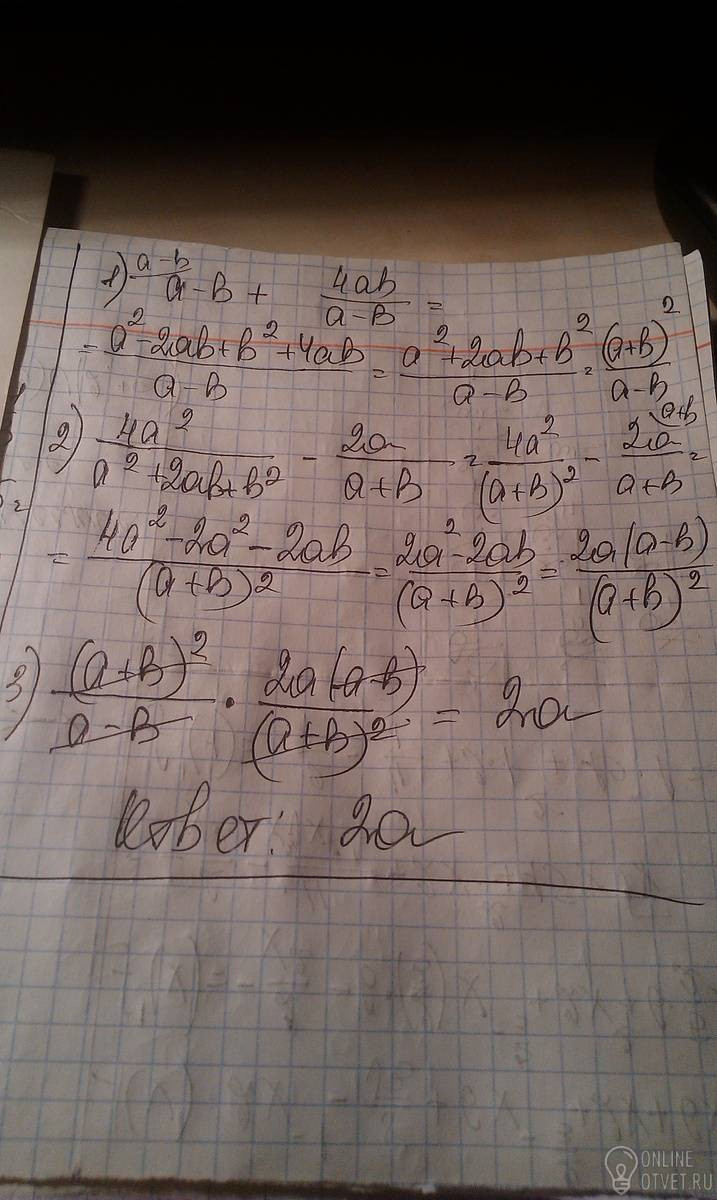 1) a-b/ a-b + 4ab/(a-b) =
= (a²-2ab+b²+4ab)/(a-b) = (a²+2ab+b²)/(a-b) = (a+b)²/(a-b)
2) 4a²/(a²+2ab+b²) - 2a/(a+b) = 4a²/(a+b)² - 2a\a+b/(a+b) =
= (4a²-2a²-2ab)/(a+b)² = (2a²-2ab)/(a+b)² = 2a(a-b)/(a+b)²
3) (a+b)²/(a-b) · 2a(a-b)/(a+b)² = 2a
Ответ: 2a
ONLINE
OTVET.RU